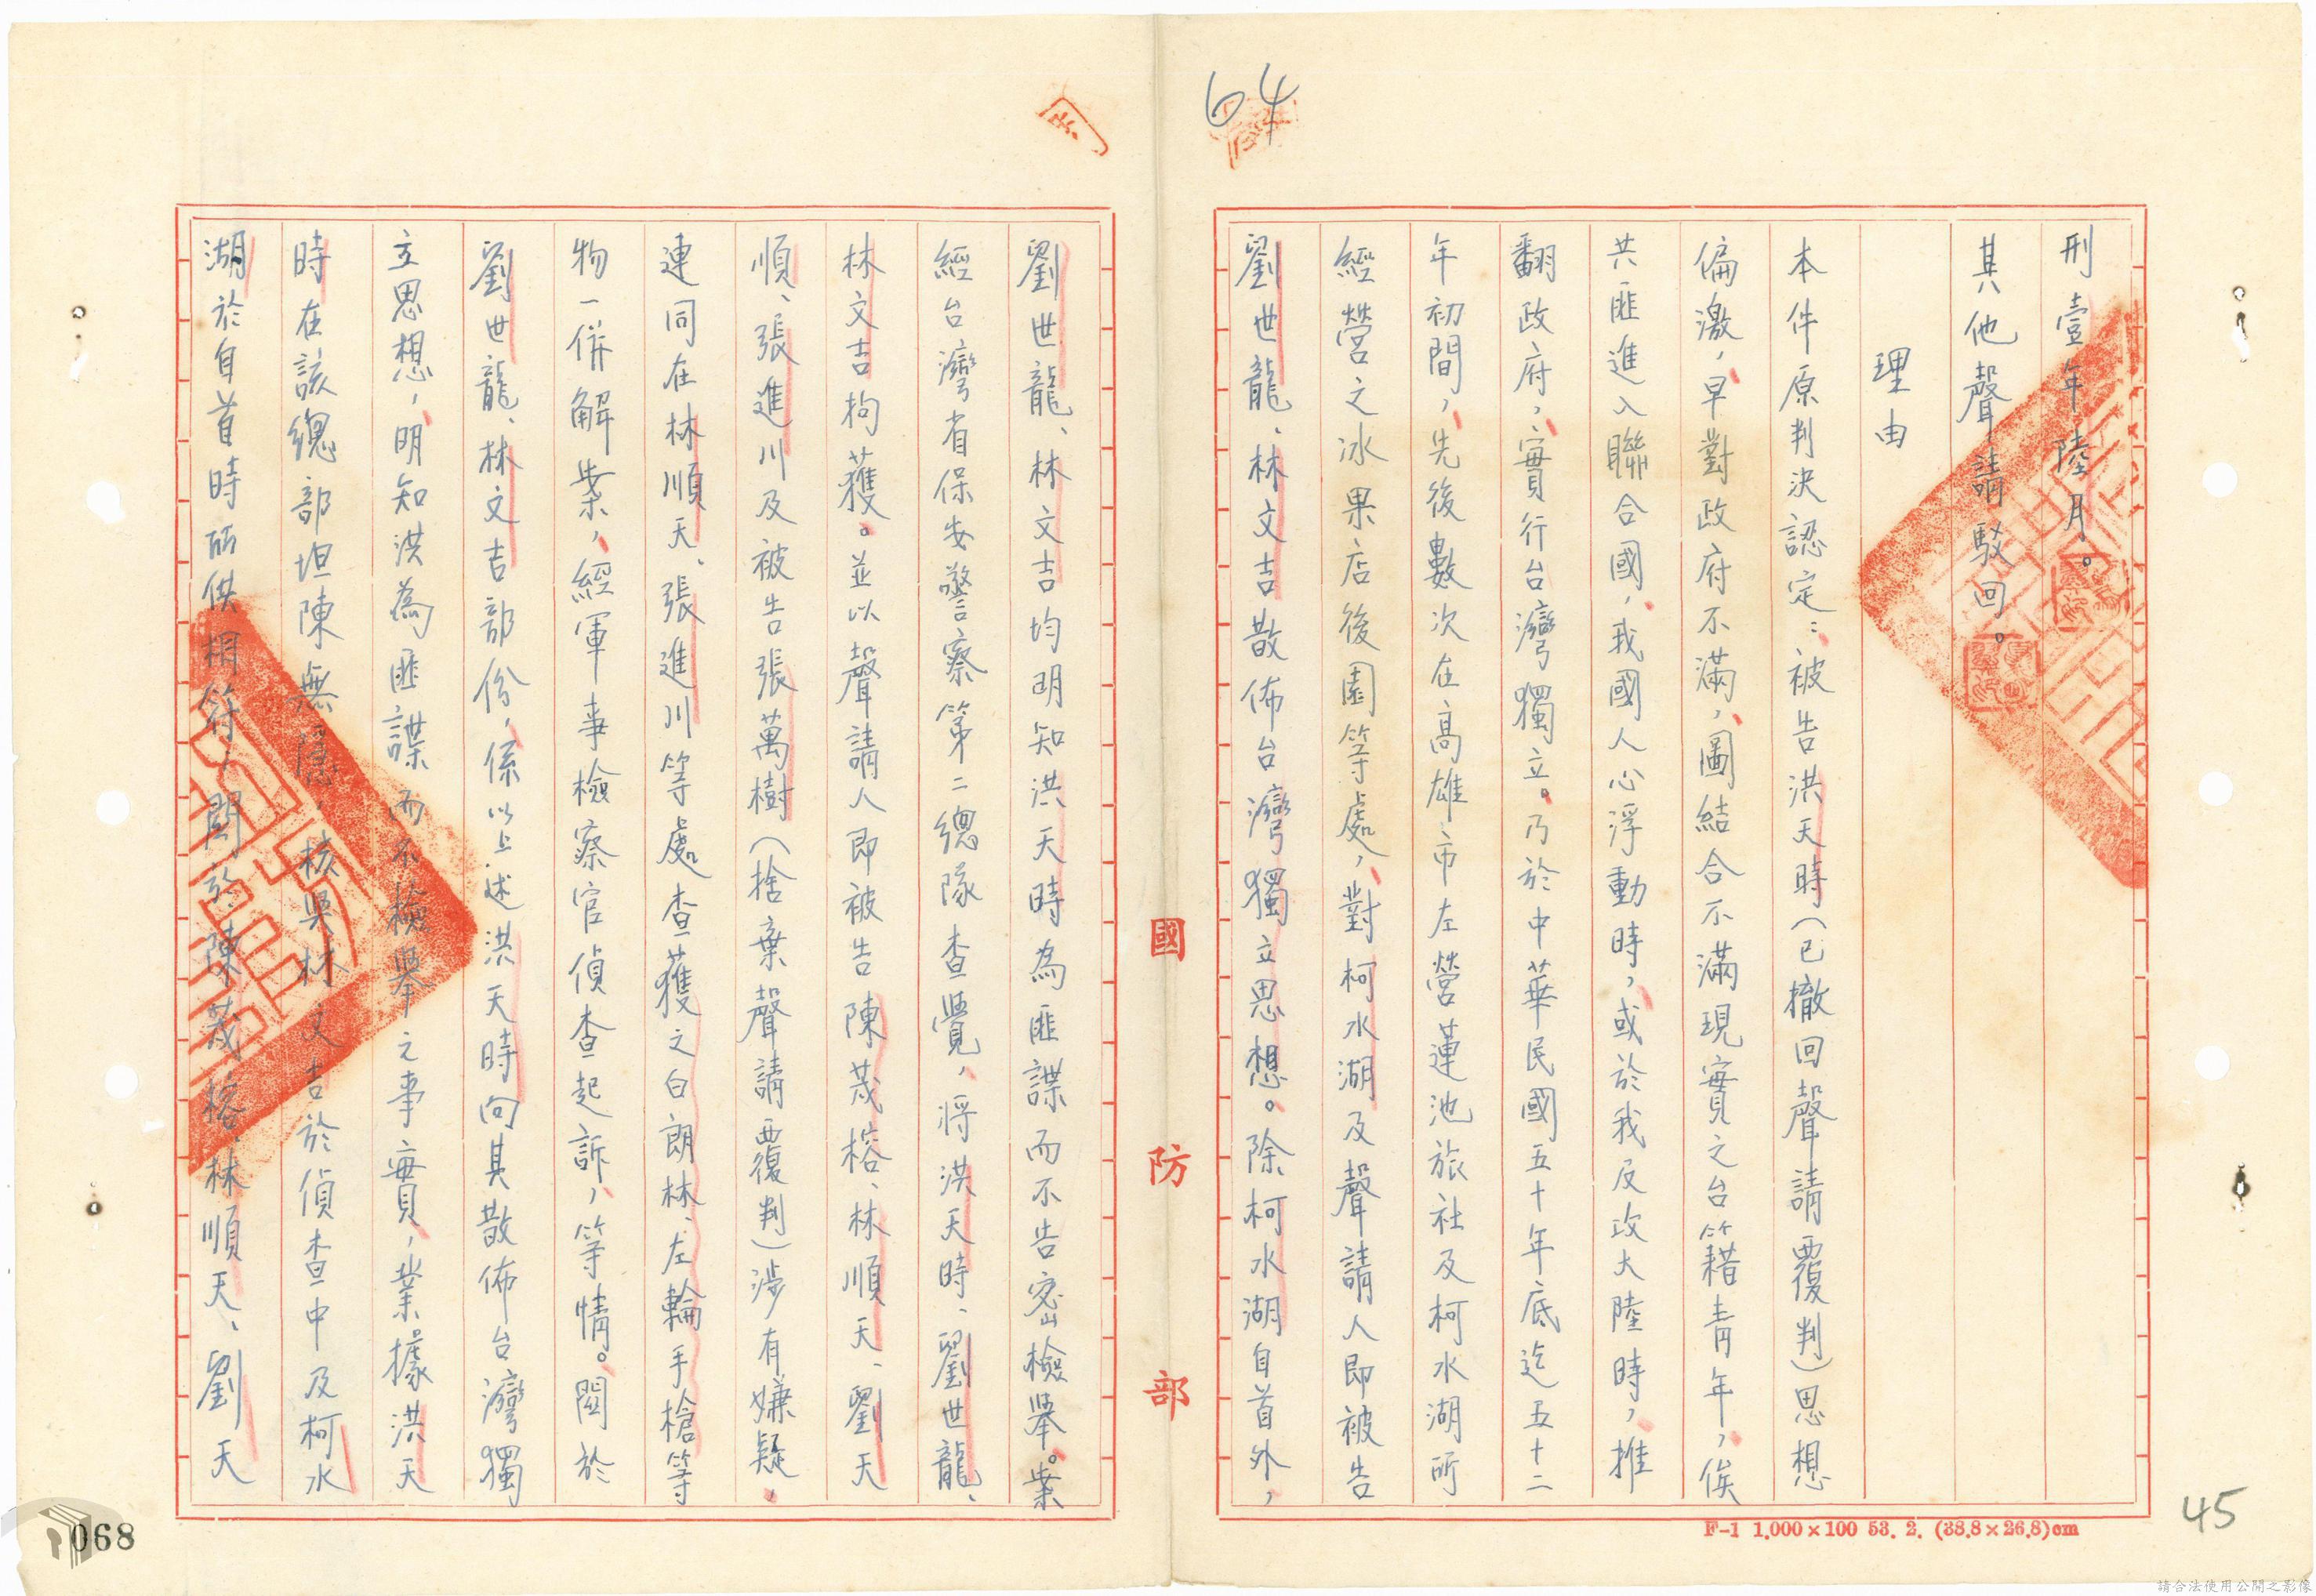 64
刑壹年陸月。
其他聲請駁回。
理由
本件原判決認定：被告洪天時（已撤回聲請覆判）思想
偏激，早對政府不滿，圖結合不滿現實之台籍青年，俟
共匪進入聯合國，我國人心浮動時，或於我反攻大陸時，推
翻政府，實行台灣獨立。乃於中華民國五十年底迄五十二
年初間，先後數次在高雄市左營蓮池旅社及柯水湖所
經營之冰果店後園等處，對柯水湖及聲請人即被告
劉世龍、林文吉散佈台灣獨立思想。除柯水湖自首外，
國防部
劉世龍、林文吉均明知洪天時為匪諜而不告密檢舉。案
經台灣省保安警察第二總隊查覺，將洪天時、劉世龍、
林文吉拘獲。並以聲請人即被告陳茂榕、林順天、劉天
順、張進川及被告張萬樹（捨棄聲請覆判）涉有嫌疑，
連同在林順天、張進川等處查獲之白朗林、左輪手槍等
物一併解案，經軍事檢察官偵查起訴，等情。關於
劉世龍、林文吉部份，係以上述洪天時向其散佈台灣獨
立思想，明知洪為匪諜而不檢舉之事實，業據洪天
時在該總部坦陳無隱，核與林文吉於偵查中及柯水
湖於自首時所供相符，關於陳茂榕、林順天、劉天
F-1 1,000×100 53. 2. (38.8×26.8)cm
45
068
請合法使用公開之影像